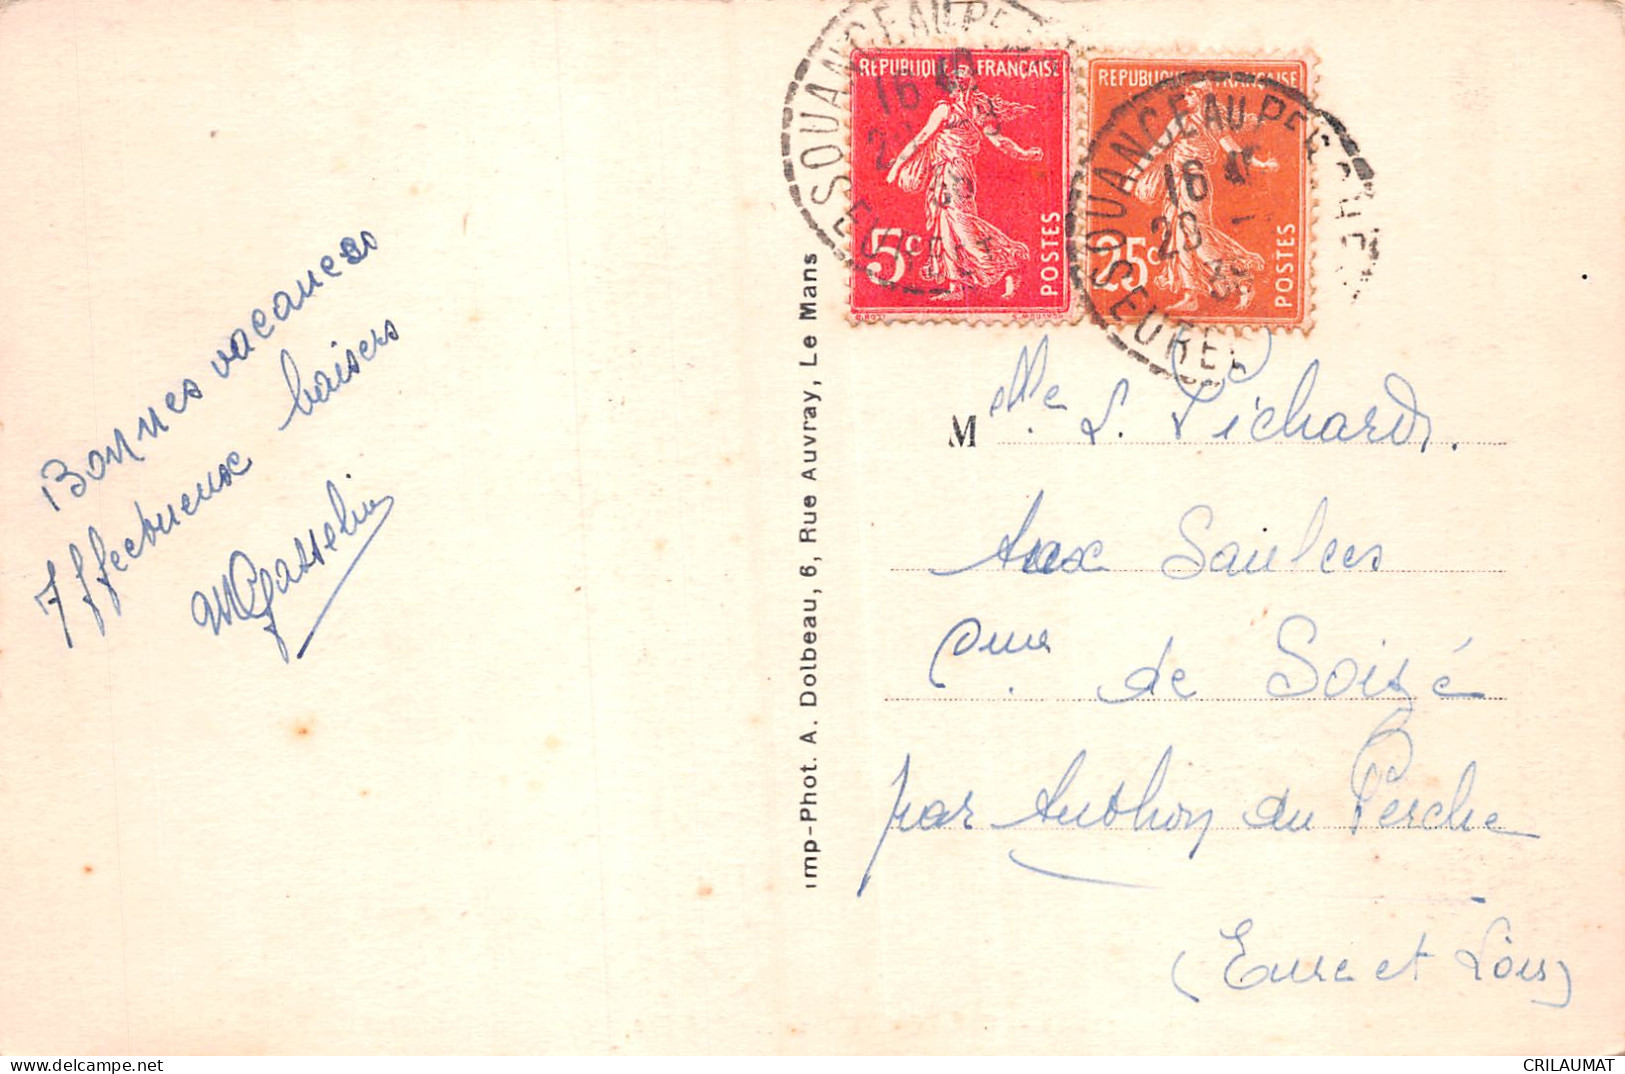 Bonnes vacances
Affectueux baisers
MGasselin
Imp-Phot. A. Dolbeau, 6, Rue Auvray, Le Mans
REPUBLIQUE FRANÇAISE
5c
POSTES
REPUBLIQUE FRANÇAISE
25c
POSTES
SOUANCE AU PERCHE
16
28
EURE
SOUANCE AU PERCHE
16
28
EURE
Mlle L. Pichard.
Aux Saulces
Cne de Soizé
par Authon du Perche
(Eure et Loir)
CRILAUMAT